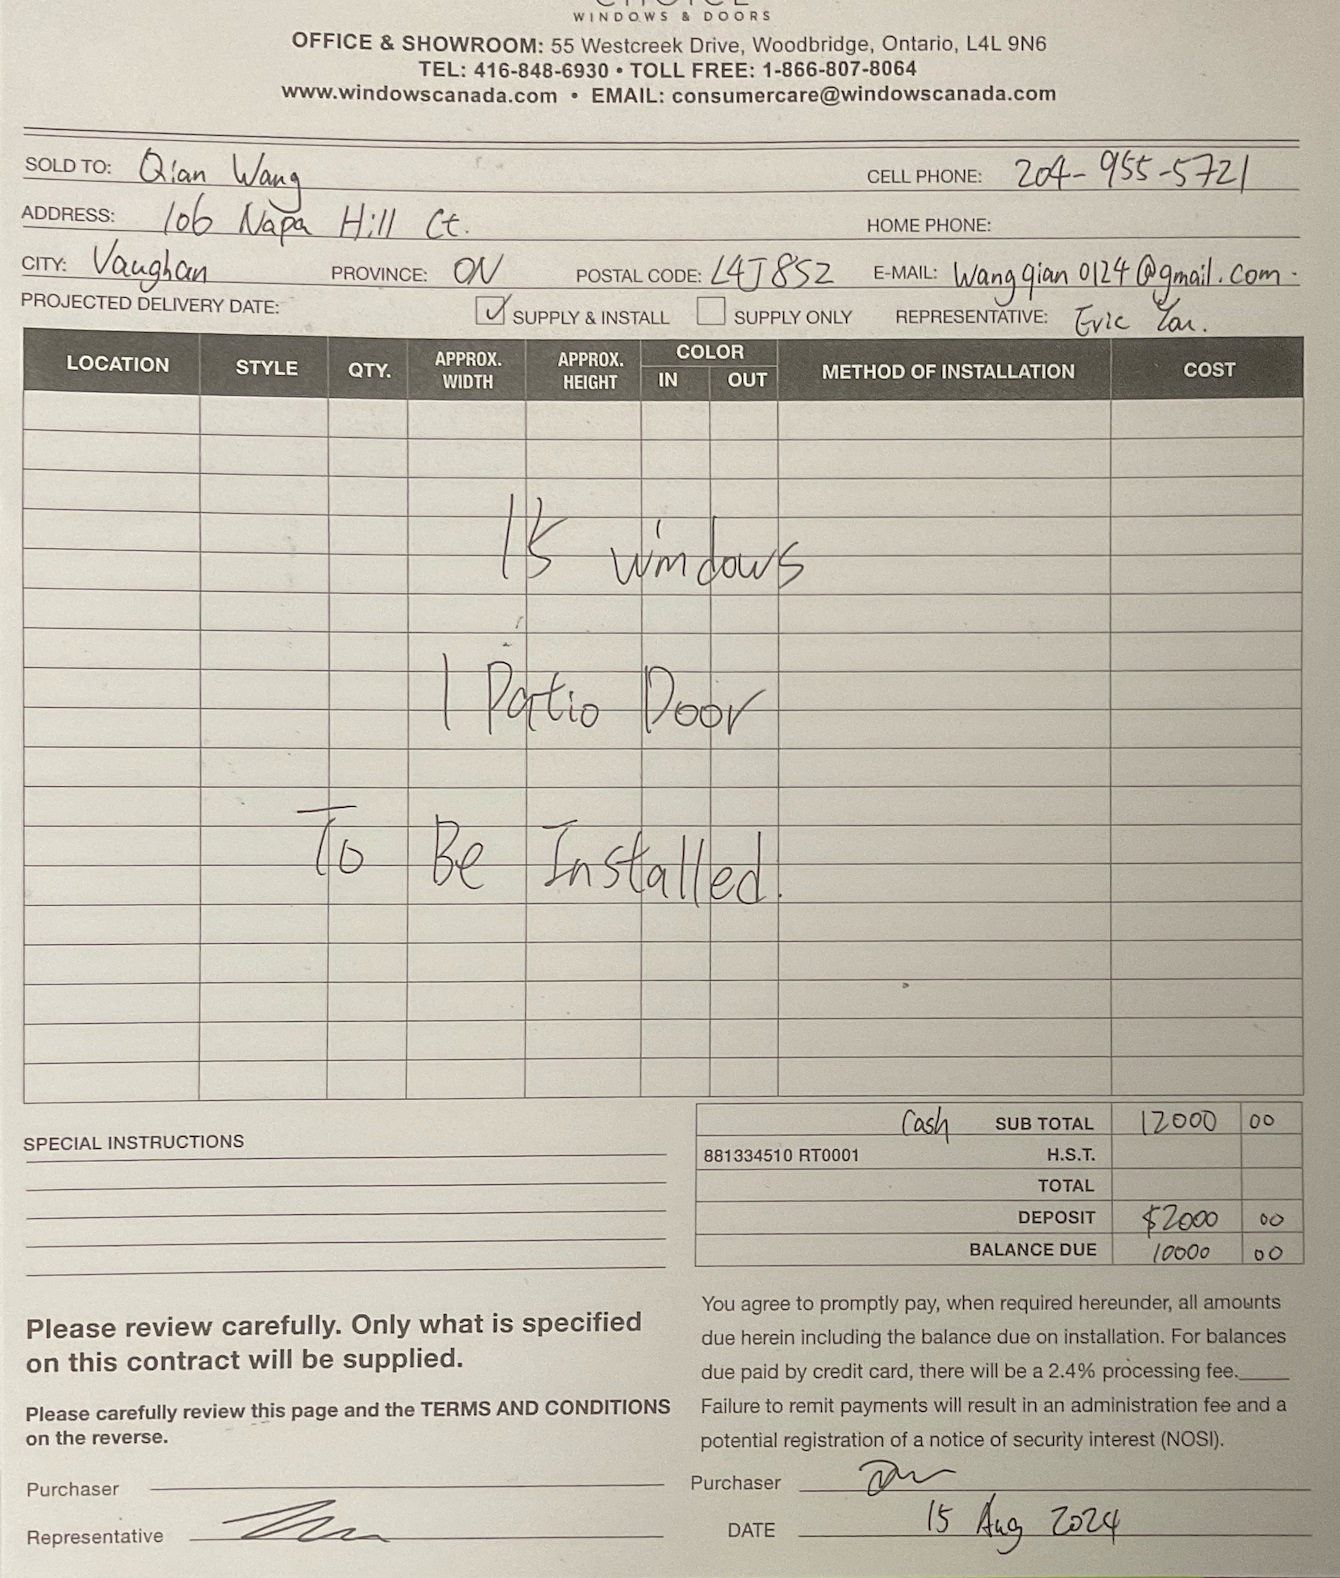 WINDOWS & DOORS
OFFICE & SHOWROOM: 55 Westcreek Drive, Woodbridge, Ontario, L4L 9N6
TEL: 416-848-6930 • TOLL FREE: 1-866-807-8064
www.windowscanada.com • EMAIL: consumercare@windowscanada.com
SOLD TO: Qian Wang CELL PHONE: 204-955-5721
ADDRESS: 106 Napa Hill Ct. HOME PHONE:
CITY: Vaughan PROVINCE: ON POSTAL CODE: L4J8S2 E-MAIL: Wangqian0124@gmail.com
PROJECTED DELIVERY DATE: SUPPLY & INSTALL SUPPLY ONLY REPRESENTATIVE: Eric
LOCATION STYLE QTY. APPROX. WIDTH APPROX. HEIGHT COLOR IN OUT METHOD OF INSTALLATION COST
15 windows
1 Patio Door
To Be Installed.
SPECIAL INSTRUCTIONS
Cash SUB TOTAL 12000 00
881334510 RT0001 H.S.T.
TOTAL
DEPOSIT $2000 00
BALANCE DUE 10000 00
Please review carefully. Only what is specified
on this contract will be supplied.
Please carefully review this page and the TERMS AND CONDITIONS
on the reverse.
Purchaser
Representative
You agree to promptly pay, when required hereunder, all amounts
due herein including the balance due on installation. For balances
due paid by credit card, there will be a 2.4% processing fee.
Failure to remit payments will result in an administration fee and a
potential registration of a notice of security interest (NOSI).
Purchaser
DATE 15 Aug 2024